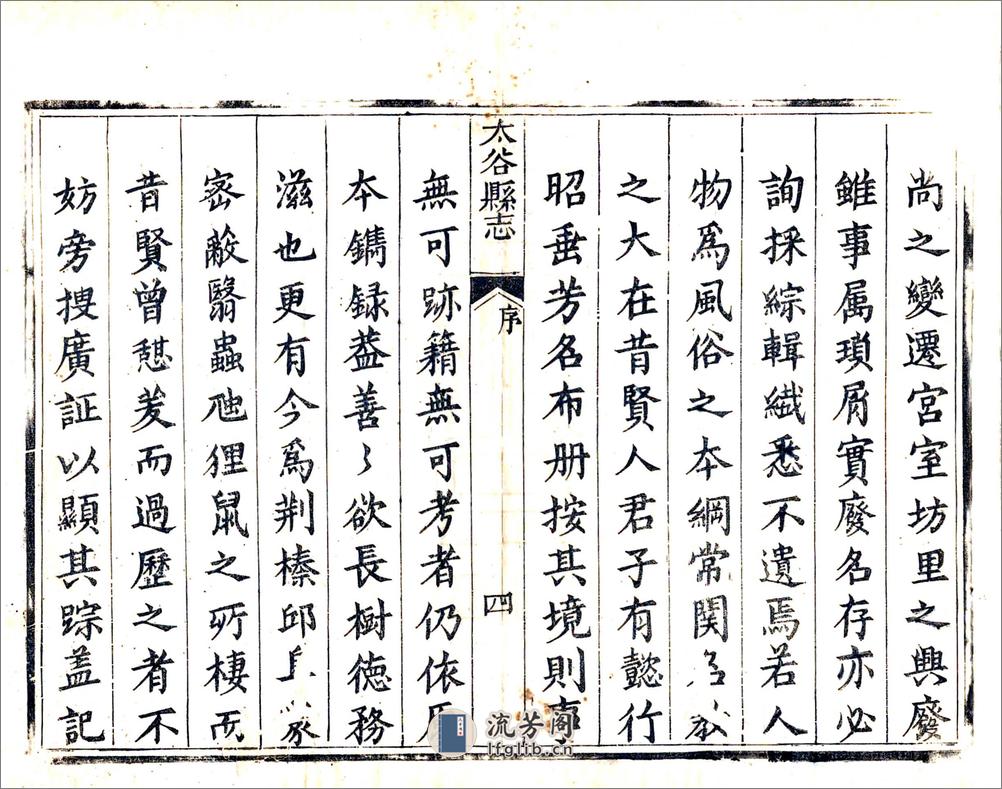 尚之變遷宮室坊里之興廢
雖事属瑣屑實廢名存亦必
詢採綜輯纎悉不遺焉若人
物爲風俗之本綱常関
之大在昔賢人君子有懿行
昭垂芳名布册按其境則
太谷縣志
序
四
無可跡籍無可考者仍依
本鐫録葢善〻欲長樹德務
滋也更有今爲荆榛邱
宻蔽翳蟲虵狸鼠之所棲而
昔賢曾憇爰而過歷之者不
妨旁搜廣証以顯其踪盖記
流芳阁
lfglib.cn